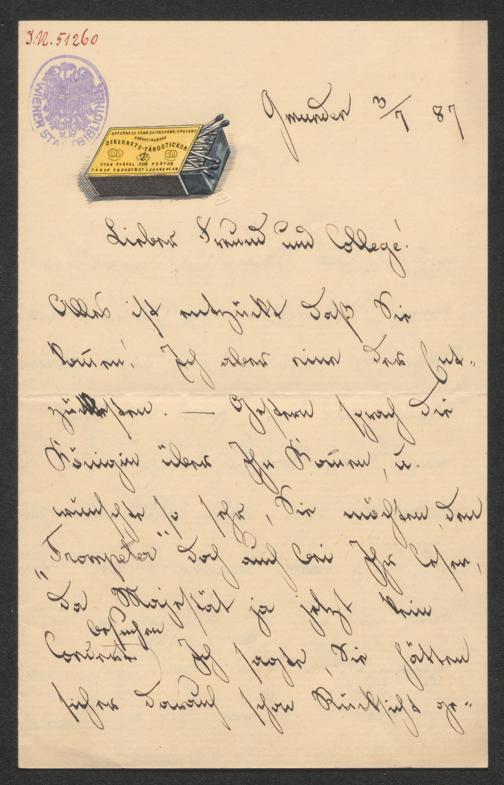 I.N. 51260
WIENER STADTBIBLIOTHEK
SÄKERHETS-TÄNDSTICKOR
UTAN SVAFVEL OCH FOSFOR
TÄNDA ENDAST MOT LÅDANS PLÅN
Gmunden 3/7 87
Lieber Freund und College!
Alles ist entzückt daß Sie
kommen! Ich aber eine der Ent-
zücktesten. — Gestern sprach die
Königin über Ihr Kommen, u.
wünschte so sehr, Sie möchten den
"Trompeter" doch auch bei Ihr lesen,
da Majestät ja jetzt kein
besuchen
Concert Ich sagte, Sie hätten
sicher darauf schon Rücksicht ge-